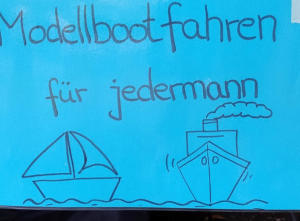 Modellbootfahren
für jedermann